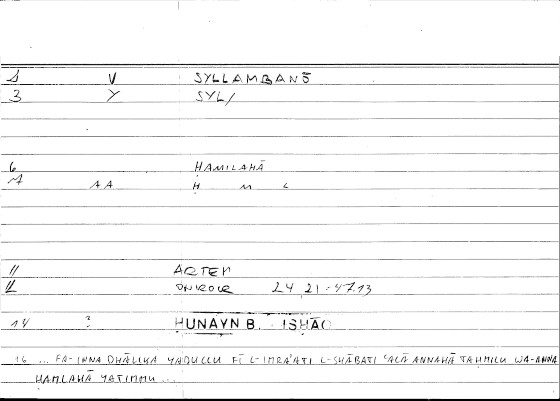 1 V SYLLAMBANŌ
3 Y SYL/
6 HAMILAHĀ
7 AA Ḥ M L
11 ARTEM
12 ONIROCR 24,21:47.13
14 ? ḤUNAYN B. ISḤĀQ
16 ... FA-INNA DHĀLIKA YADULLU FĪ L-IMRAʾATI L-SHĀBATI ʿALĀ ANNAHĀ TAḤMILU WA-ANNA
ḤAMLAHĀ YATIMMU ...